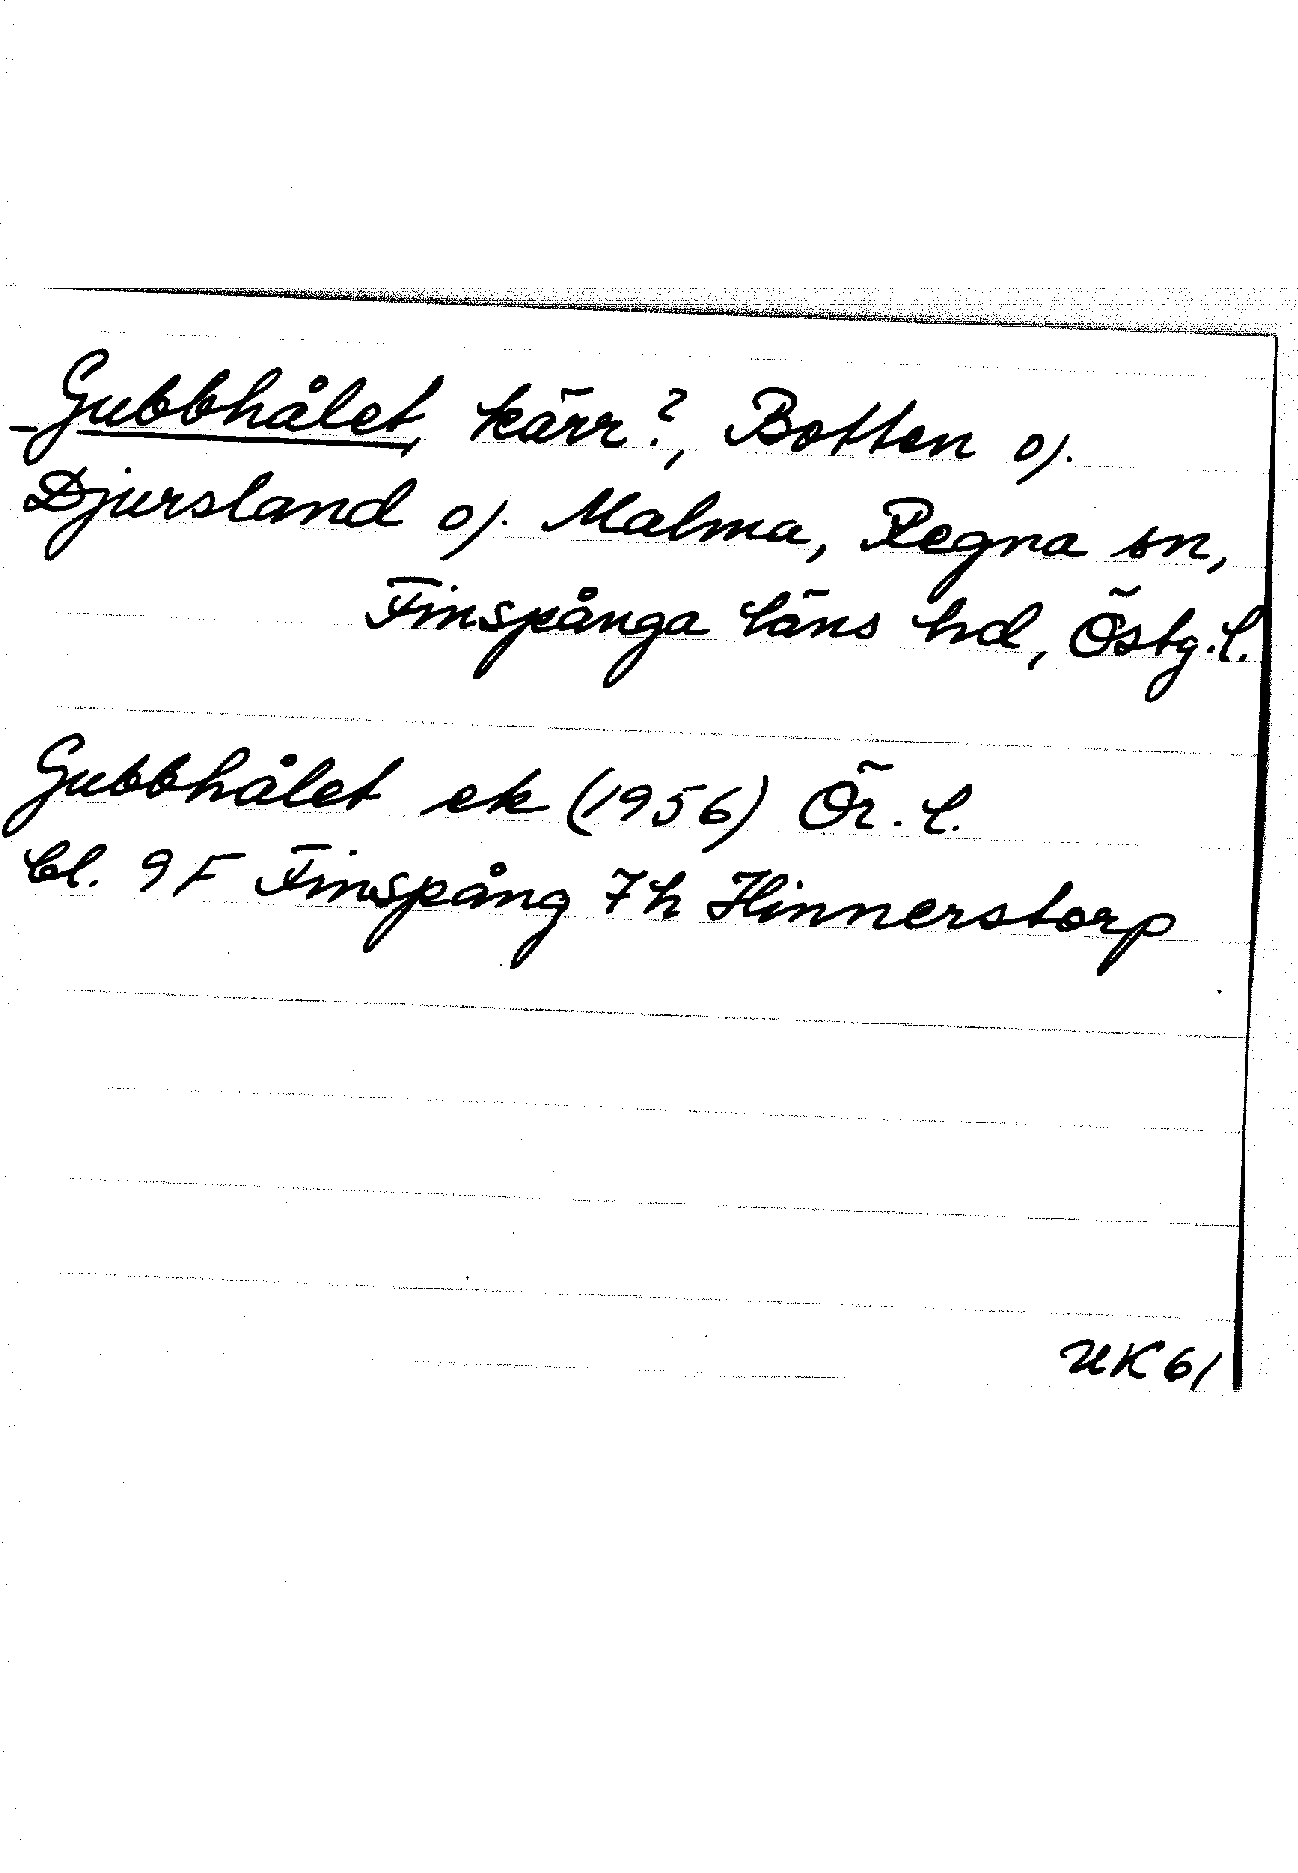 Gubbhålet, kärr?, Botten o.
Djursland o. Malma, Regna sn,
Finspånga läns hd, Östg. l.
Gubbhålet ek (1956) Ör. l.
bl. 9F Finspång 7h Hinnerstorp
UK 61